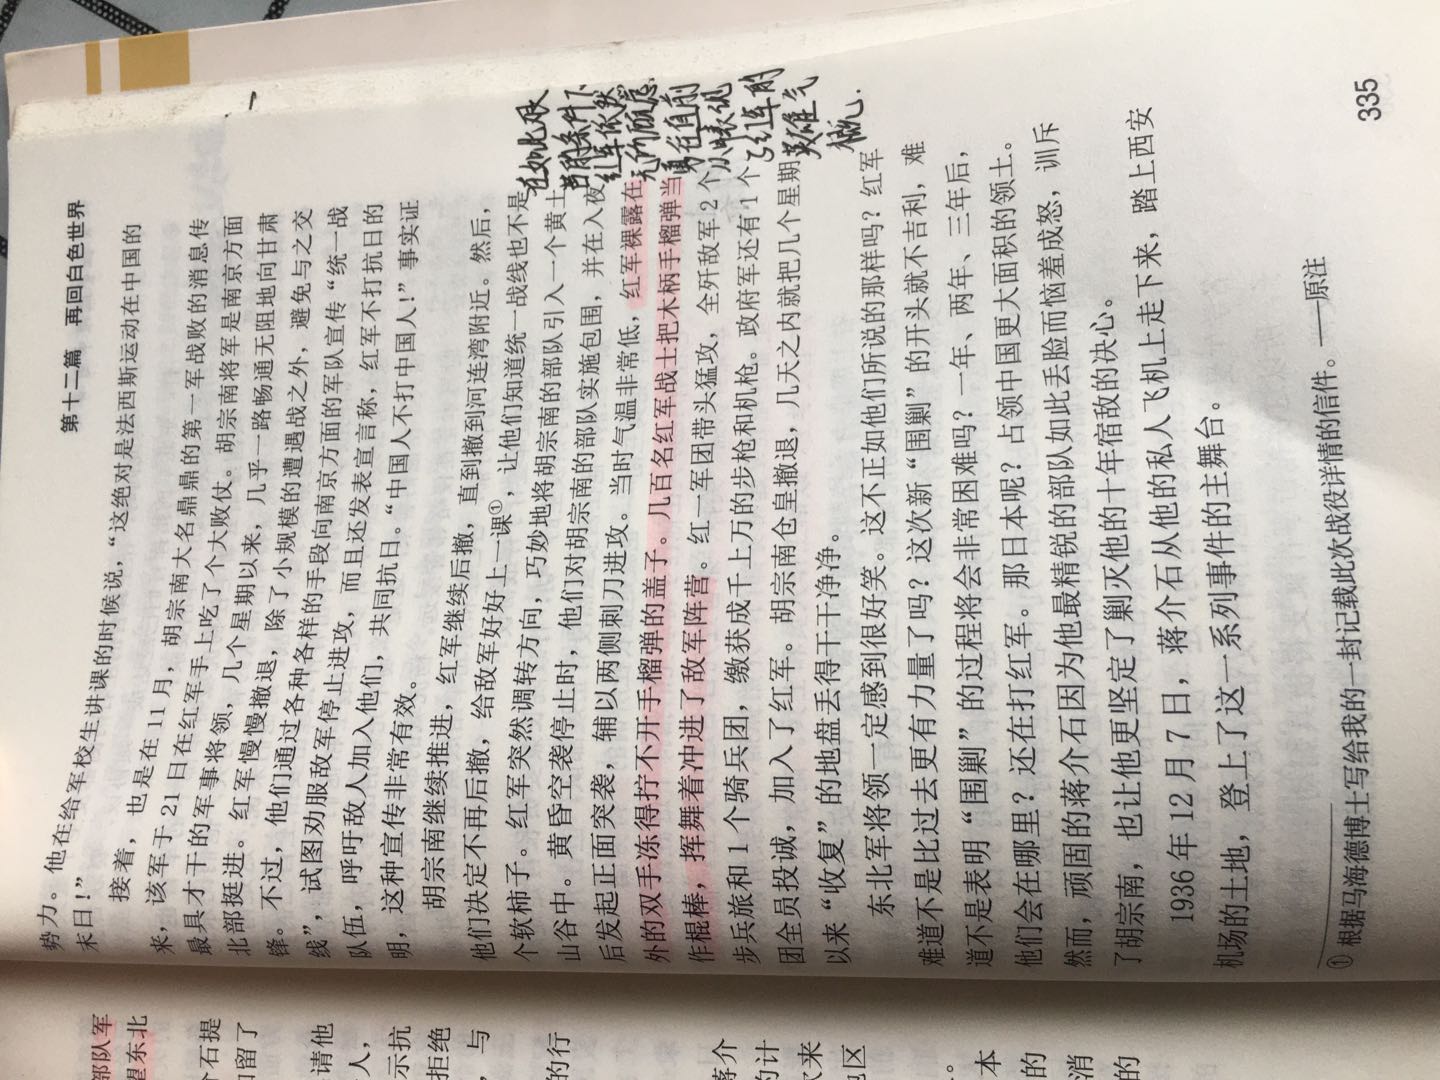 第十二篇 再回白色世界
势力。他在给军校生讲课的时候说，“这绝对是法西斯运动在中国的
末日！”
接着，也是在11月，胡宗南大名鼎鼎的第一军战败的消息传
来，该军于21日在红军手上吃了个大败仗。胡宗南将军是南京方面
最具才干的军事将领，几个星期以来，几乎一路畅通无阻地向甘肃
北部挺进。红军慢慢撤退，除了小规模的遭遇战之外，避免与之交
锋。不过，他们通过各种各样的手段向南京方面的军队宣传“统一战
线”，试图劝服敌军停止进攻，而且还发表宣言称，红军不打抗日的
队伍，呼吁敌人加入他们，共同抗日。“中国人不打中国人！”事实证
明，这种宣传非常有效。
胡宗南继续推进，红军继续后撤，直到撤到河连湾附近。然后，
他们决定不再后撤，给敌军好好上一课①，让他们知道统一战线也不是
个软柿子。红军突然调转方向，巧妙地将胡宗南的部队引入一个黄土
山谷中。黄昏空袭停止时，他们对胡宗南的部队实施包围，并在入夜
后发起正面突袭，辅以两侧刺刀进攻。当时气温非常低，红军裸露在
外的双手冻得拧不开手榴弹的盖子。几百名红军战士把木柄手榴弹当
作棍棒，挥舞着冲进了敌军阵营。红一军团带头猛攻，全歼敌军2个
步兵旅和1个骑兵团，缴获成千上万的步枪和机枪。政府军还有1个
团全员投诚，加入了红军。胡宗南仓皇撤退，几天之内就把几个星期
以来“收复”的地盘丢得干干净净。
东北军将领一定感到很好笑。这不正如他们所说的那样吗？红军
难道不是比过去更有力量了吗？这次新“围剿”的开头就不吉利，难
道不是表明“围剿”的过程将会非常困难吗？一年、两年、三年后，
他们会在哪里？还在打红军。那日本呢？占领中国更大面积的领土。
然而，顽固的蒋介石因为他最精锐的部队如此丢脸而恼羞成怒，训斥
了胡宗南，也让他更坚定了剿灭他的十年宿敌的决心。
1936年12月7日，蒋介石从他的私人飞机上走下来，踏上西安
机场的土地，登上了这一系列事件的主舞台。
① 根据马海德博士写给我的一封记载此次战役详情的信件。——原注
335
在如此艰
苦的条件下
红军依然
无所顾虑
勇往直前
表现
了红军的
英雄气
概.
部队军
望东北
介石提
扣留了
请他
人，
示抗
拒绝
，与
的行
蒋介
的计
次来
地区
。
本
的
消
的